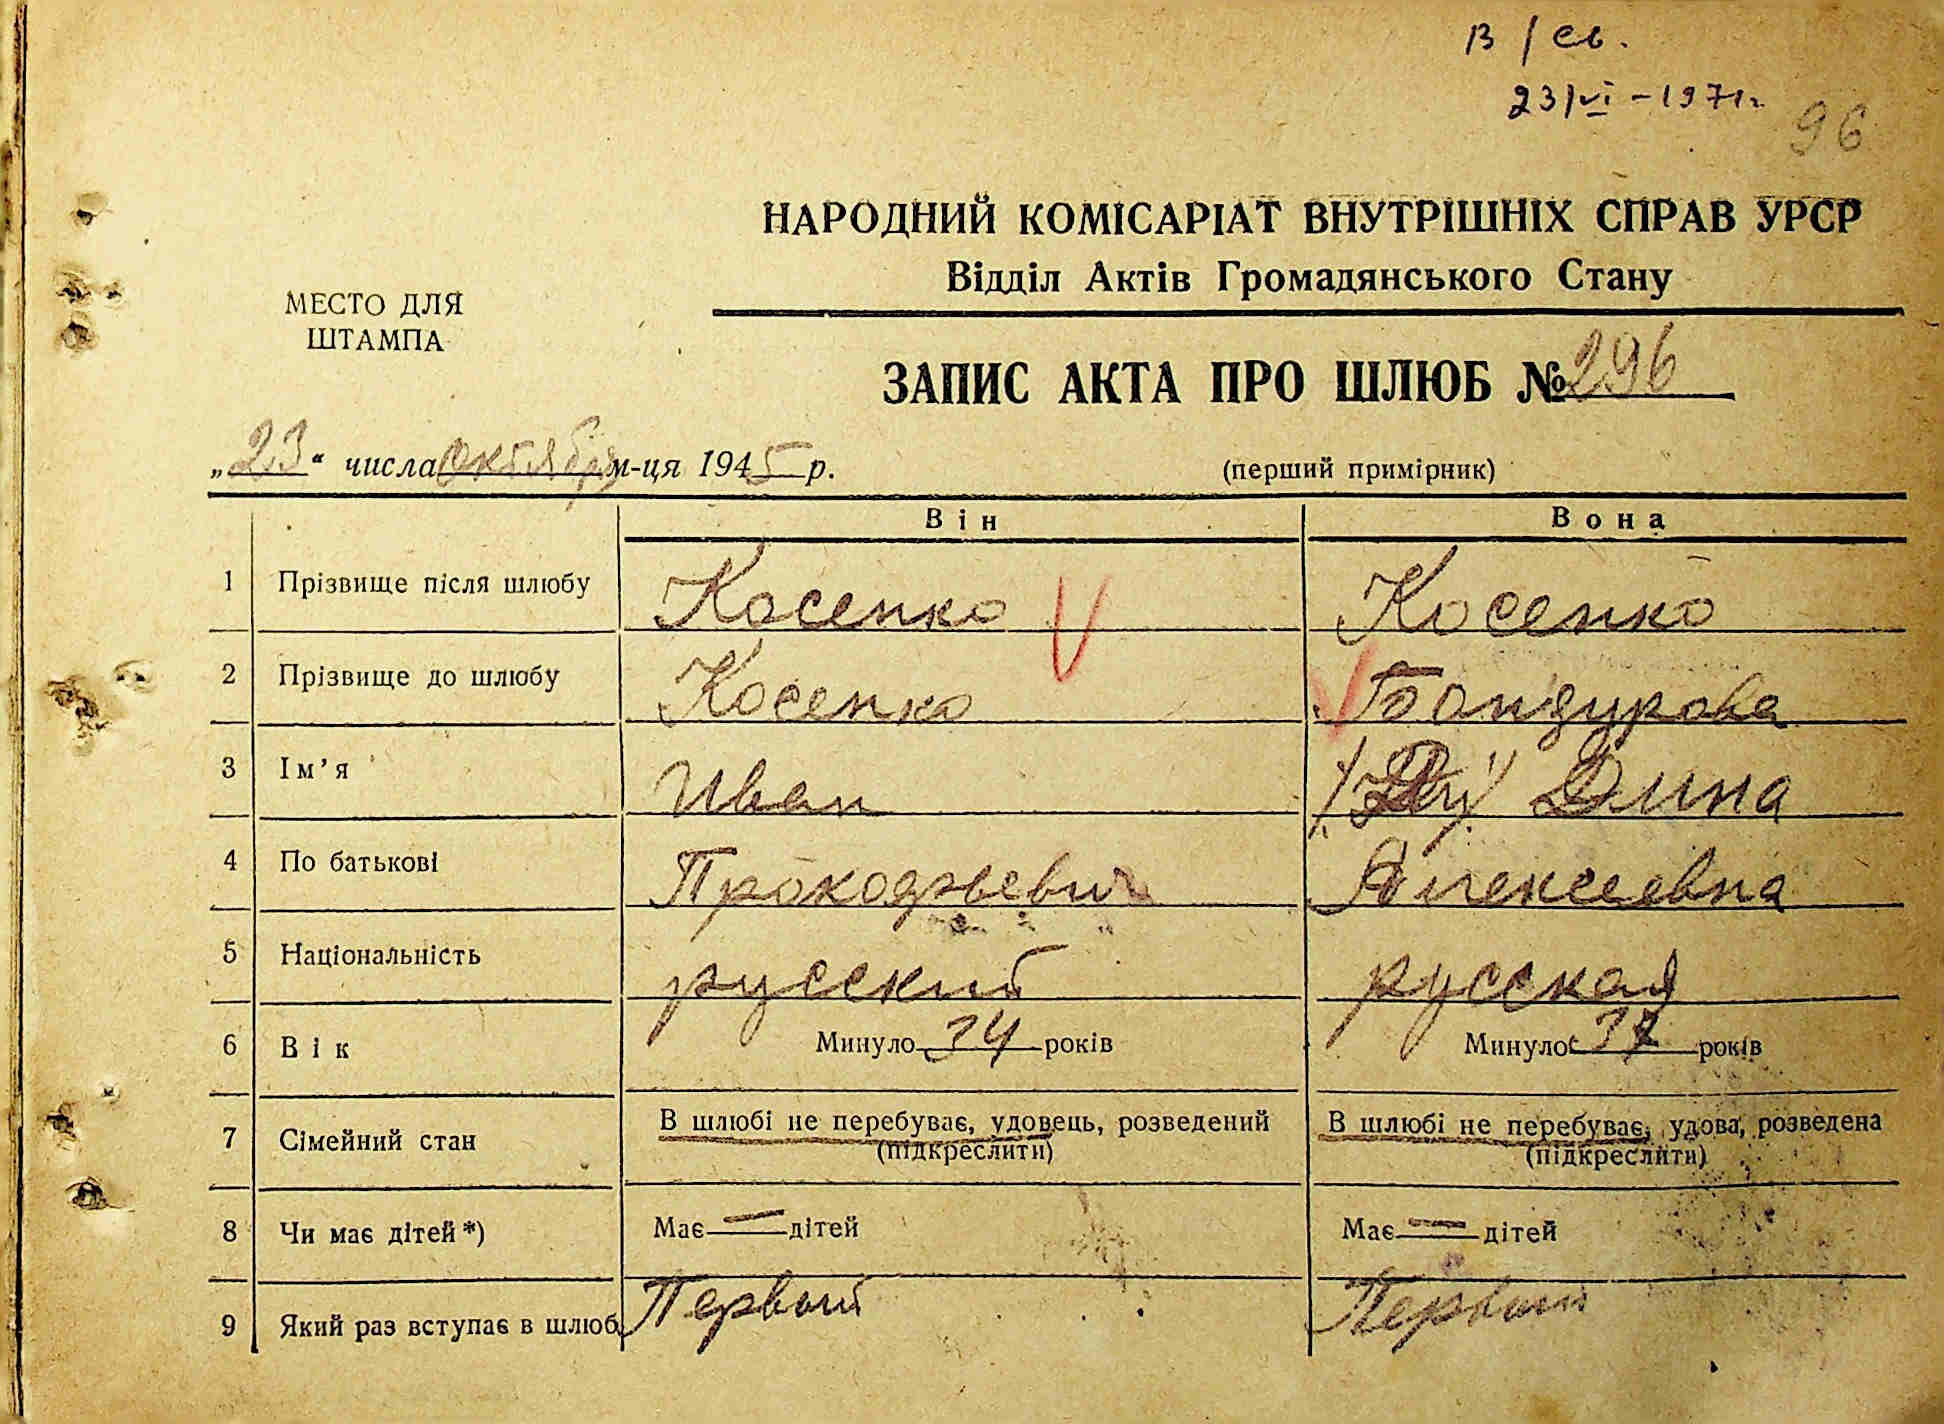 В / св.
23/VI-1971г.
96
НАРОДНИЙ КОМІСАРІАТ ВНУТРІШНІХ СПРАВ УРСР
Відділ Актів Громадянського Стану
МЕСТО ДЛЯ
ШТАМПА
ЗАПИС АКТА ПРО ШЛЮБ № 296
„23“ числа октября м-ця 1945 р.
(перший примірник)
Він Вона
1 Прізвище після шлюбу Косенко Косенко
2 Прізвище до шлюбу Косенко Бондурова
3 Ім’я Иван Дина
4 По батькові Прокофьевич Алексеевна
5 Національність русский русская
6 Вік Минуло 34 років Минуло років
7 Сімейний стан В шлюбі не перебуває, удовець, розведений В шлюбі не перебуває, удова, розведена
(підкреслити) (підкреслити)
8 Чи має дітей*) Має — дітей Має — дітей
9 Який раз вступає в шлюб Первый Первый